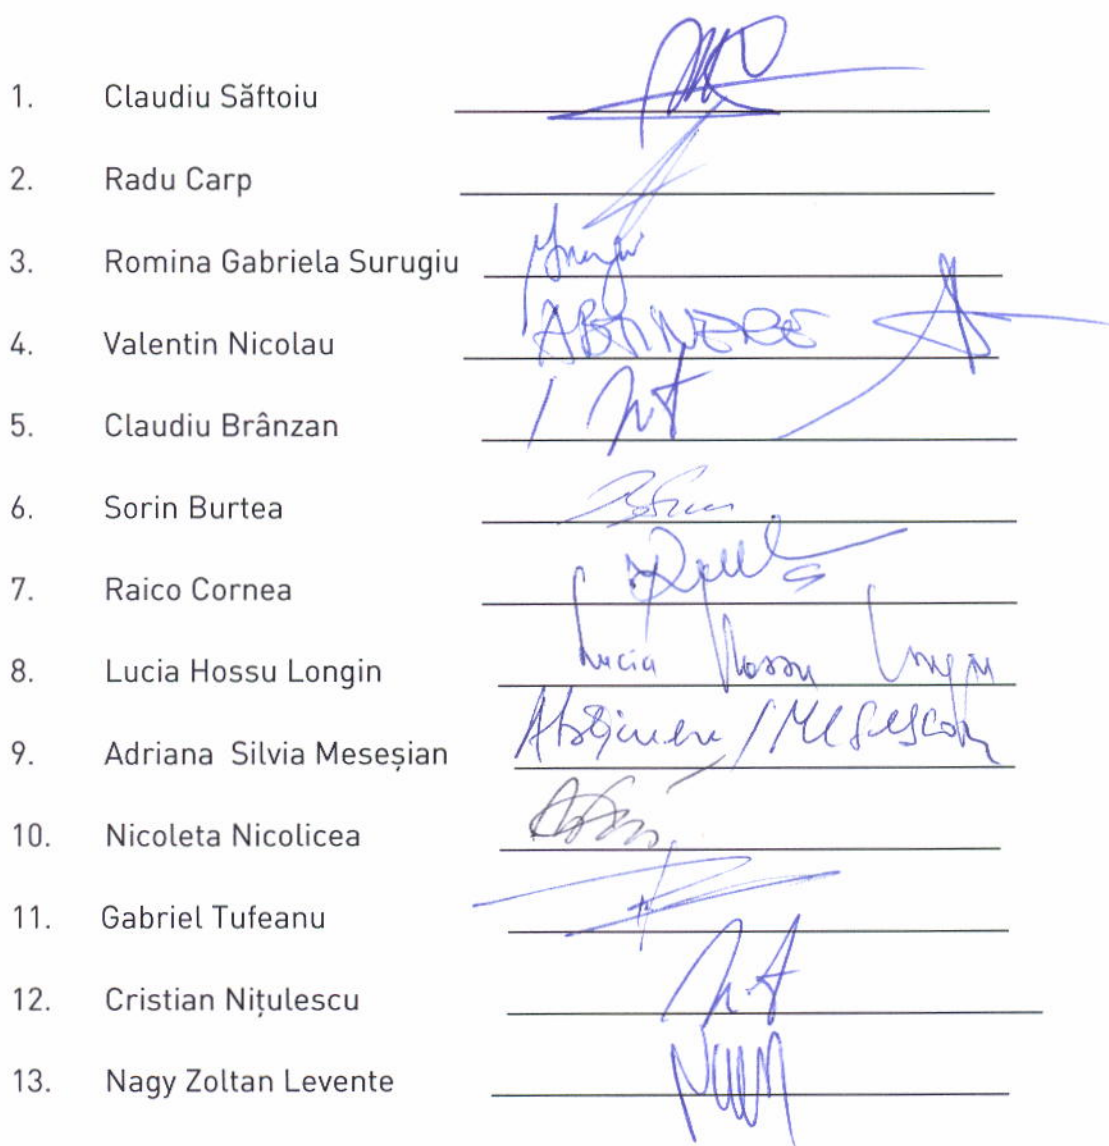 1. Claudiu Săftoiu
2. Radu Carp
3. Romina Gabriela Surugiu
4. Valentin Nicolau ABȚINERE
5. Claudiu Brânzan
6. Sorin Burtea
7. Raico Cornea
8. Lucia Hossu Longin Lucia Hossu Longin
9. Adriana Silvia Meseșian Abținere /
10. Nicoleta Nicolicea
11. Gabriel Tufeanu
12. Cristian Nițulescu
13. Nagy Zoltan Levente